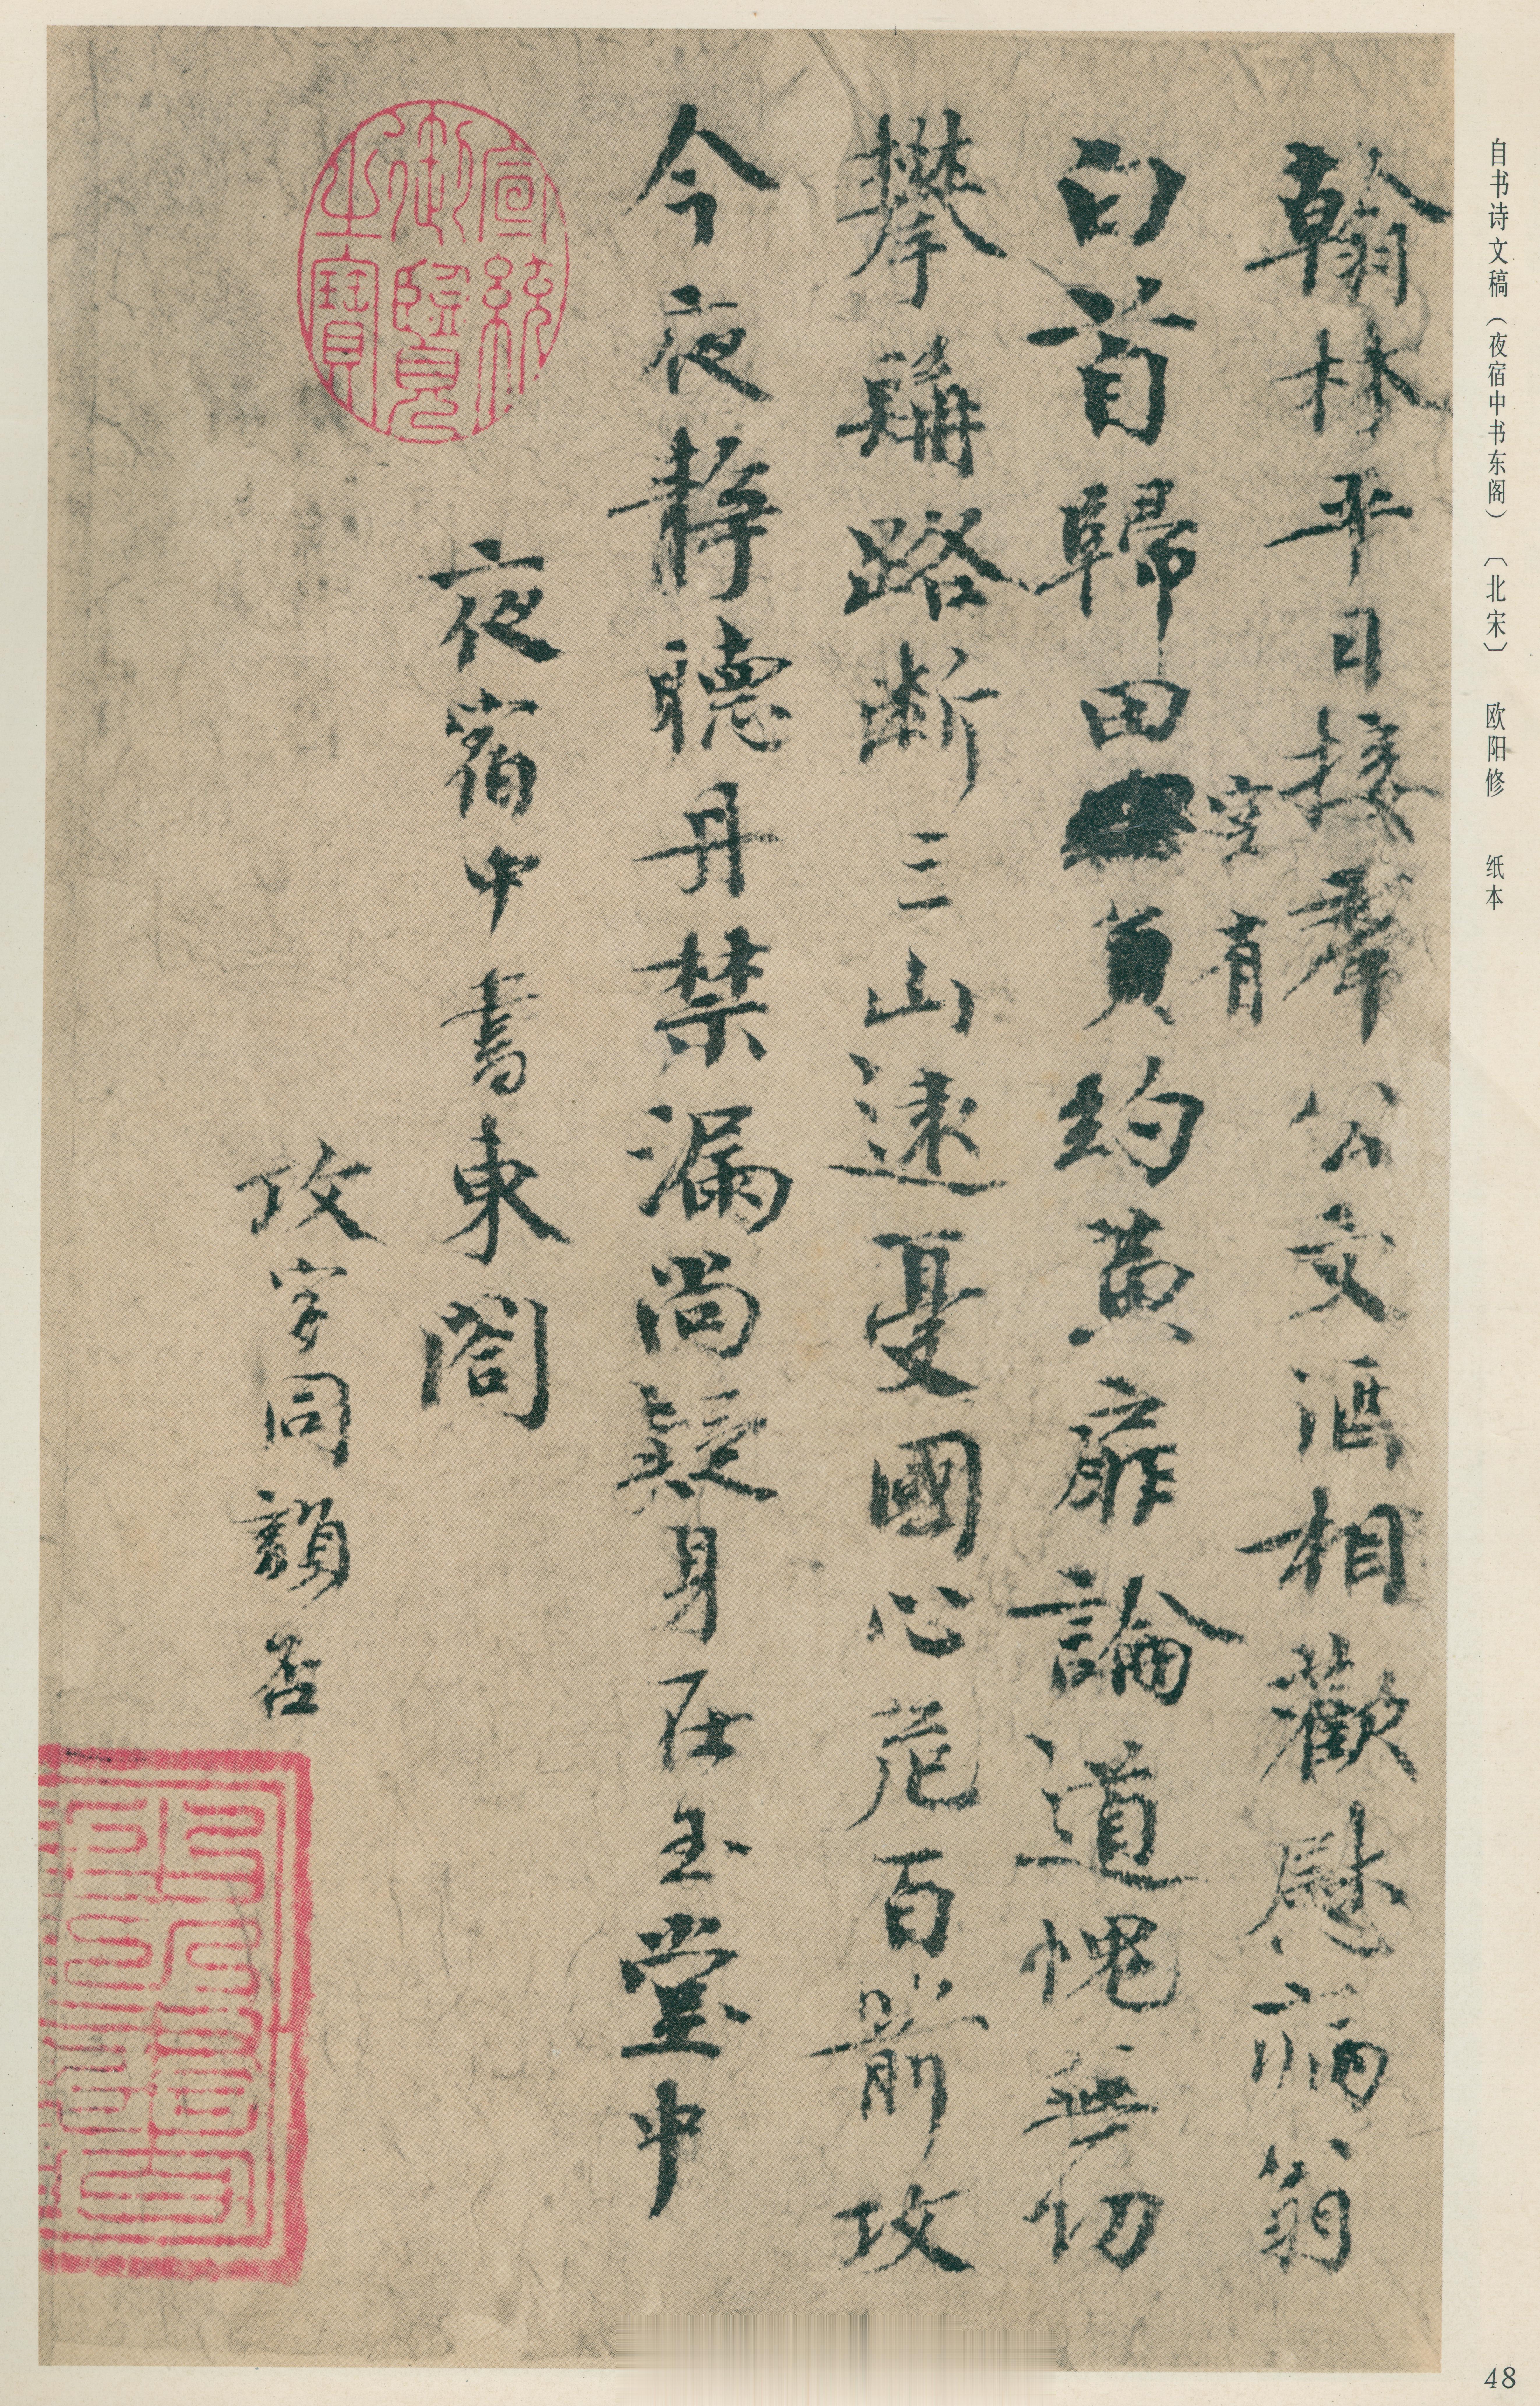 自书诗文稿（夜宿中书东阁）〔北宋〕 欧阳修 纸本
翰林平日接羣公文酒相歡慰病翁
空有
白首歸田負約黃扉論道愧無功
攀髯路斷三山遠憂國心危百箭攻
今夜靜聽丹禁漏尚疑身在玉堂中
夜宿中書東閤
攻字同韻否
宣統御覽之寶
48